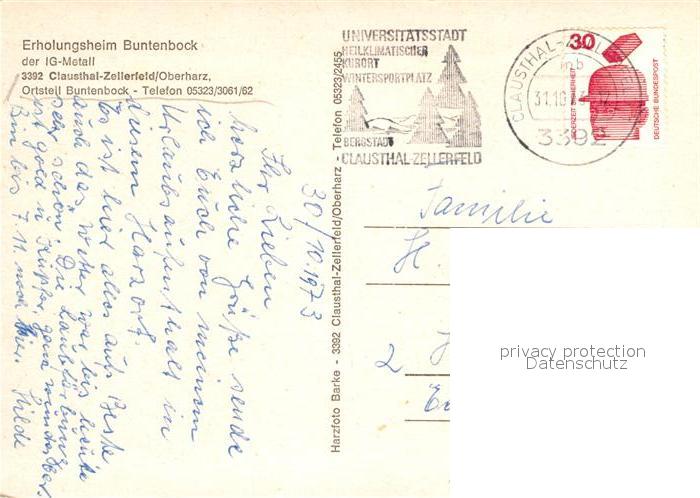 Erholungsheim Buntenbock
der IG-Metall
3392 Clausthal-Zellerfeld/Oberharz,
Ortsteil Buntenbock - Telefon 05323/3061/62
UNIVERSITÄTSSTADT
HEILKLIMATISCHER
KURORT
WINTERSPORTPLATZ
BERGSTADT
CLAUSTHAL-ZELLERFELD
CLAUSTHAL-ZELLE
mb
31.10
3392
30
JEDERZEIT SICHERHEIT
DEUTSCHE BUNDESPOST
Harzfoto Barke - 3392 Clausthal-Zellerfeld/Oberharz - Telefon 05323/2455
30/10.1973
Ihr Lieben
herzliche Grüße sende
ich Euch von meinem
Urlaubsaufenthalt in
diesem Harzort.
Es ist hier alles aufs Beste
auch das Wetter war bis heute
sehr schön. Die Laubfärbung
ist gold u. Kupfer, ganz wunderbar.
Bin bis 7.11. noch hier. Hilde
Familie
H.
2
privacy protection
Datenschutz